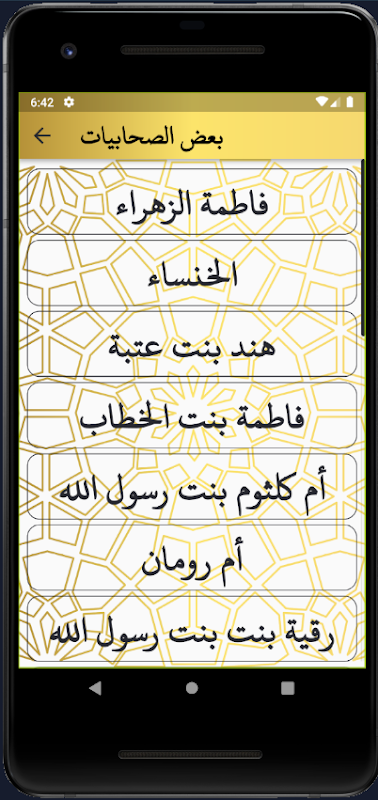 6:42
بعض الصحابيات
فاطمة الزهراء
الخنساء
هند بنت عتبة
فاطمة بنت الخطاب
أم كلثوم بنت رسول الله
أم رومان
رقية بنت بنت رسول الله